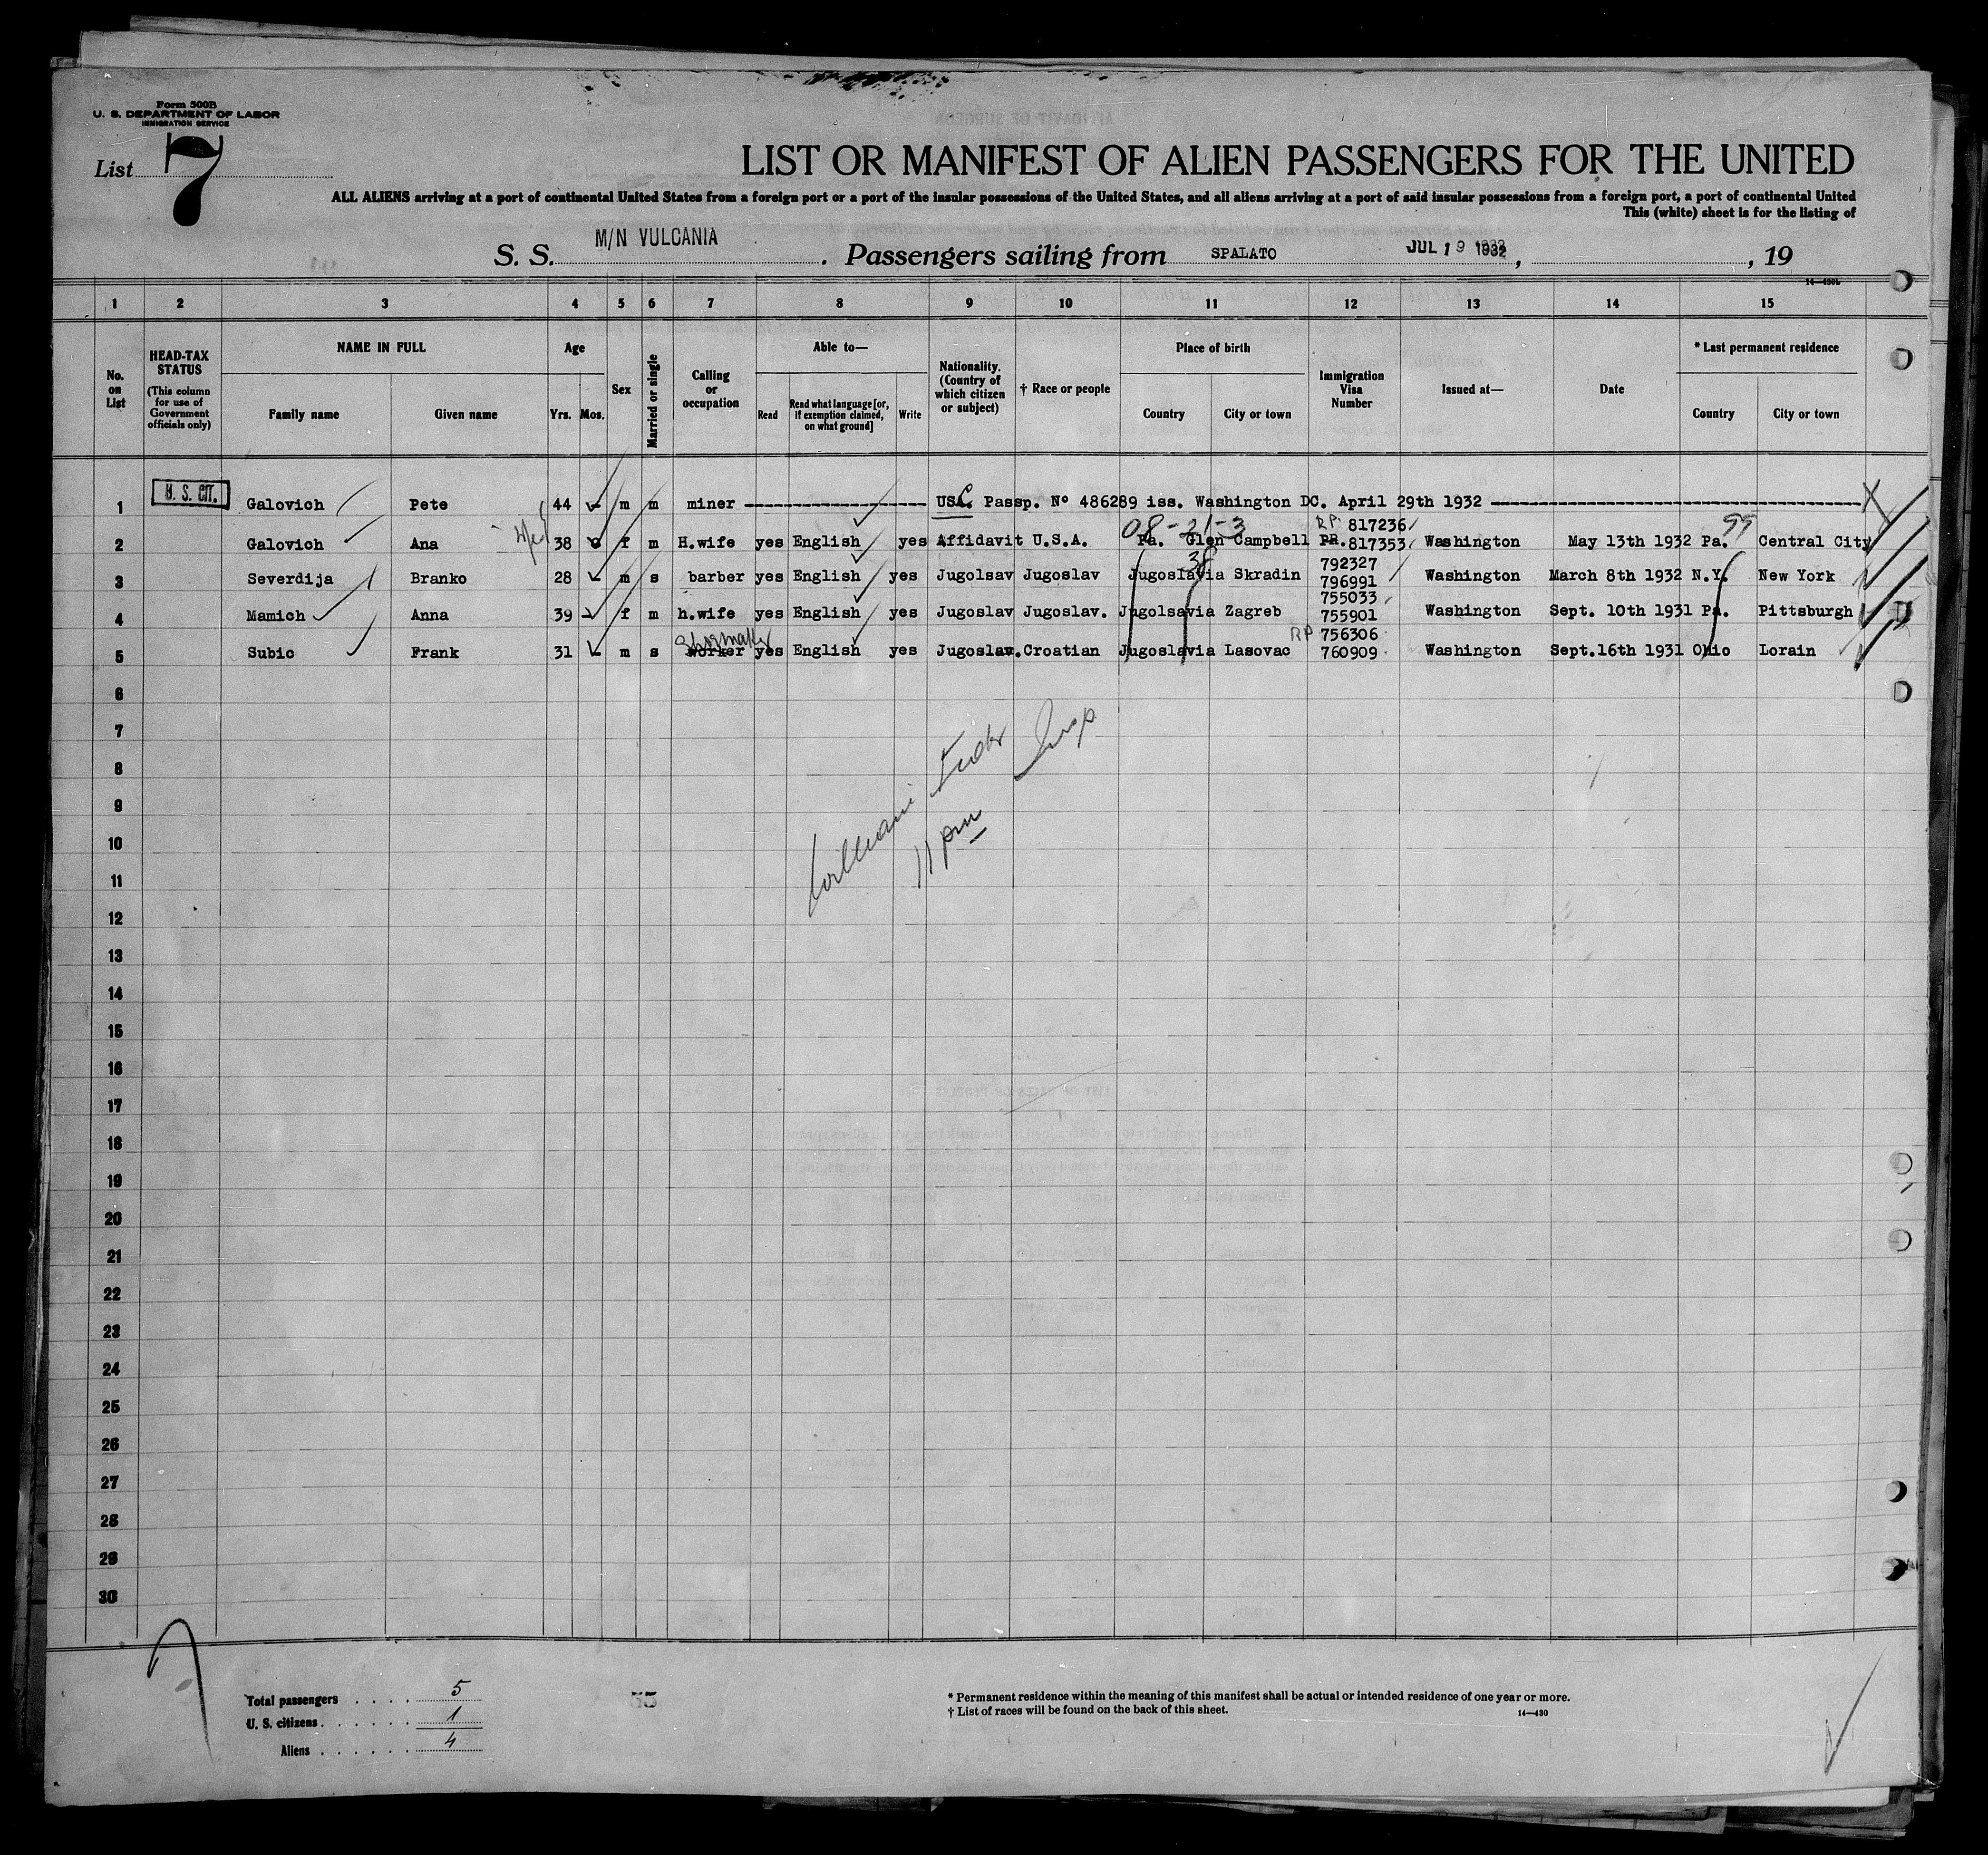 Form 500B
U. S. DEPARTMENT OF LABOR
IMMIGRATION SERVICE
List 7
LIST OR MANIFEST OF ALIEN PASSENGERS FOR THE UNITED
ALL ALIENS arriving at a port of continental United States from a foreign port or a port of the insular possessions of the United States, and all aliens arriving at a port of said insular possessions from a foreign port, a port of continental United
This (white) sheet is for the listing of
S. S. M/N VULCANIA. Passengers sailing from SPALATO JUL 19 1932, , 19
14—430b
1 2 3 4 5 6 7 8 9 10 11 12 13 14 15
No. on List
HEAD-TAX STATUS
(This column for use of Government officials only)
NAME IN FULL
Family name Given name
Age
Yrs. Mos.
Sex
Married or single
Calling or occupation
Able to—
Read Read what language [or, if exemption claimed, on what ground] Write
Nationality. (Country of which citizen or subject)
† Race or people
Place of birth
Country City or town
Immigration Visa Number
Issued at—
Date
* Last permanent residence
Country City or town
1 U. S. CIT. Galovich Pete 44 m m miner USC. Passp. Nº 486289 iss. Washington DC. April 29th 1932
08-21-3 RP. 817236 99
2 Galovich Ana 38 f m H.wife yes English yes Affidavit U.S.A. Pa. Glen Campbell PR.817353 Washington May 13th 1932 Pa. Central City
38 792327
3 Severdija Branko 28 m s barber yes English yes Jugolsav Jugoslav Jugoslavia Skradin 796991 Washington March 8th 1932 N.Y. New York
755033
4 Mamich Anna 39 f m h.wife yes English yes Jugoslav Jugoslav. Jugolsavia Zagreb 755901 Washington Sept. 10th 1931 Pa. Pittsburgh
RP 756306
5 Subic Frank 31 m s worker yes English yes Jugoslav. Croatian Jugoslavia Lasovac 760909 Washington Sept.16th 1931 Ohio Lorain
6
7
8
9
10
11
12
13
14
15
16
17
18
19
20
21
22
23
24
25
26
27
28
29
30
William Insp
11 pm
Total passengers 5
U. S. citizens 1
Aliens 4
* Permanent residence within the meaning of this manifest shall be actual or intended residence of one year or more.
† List of races will be found on the back of this sheet.
14—430